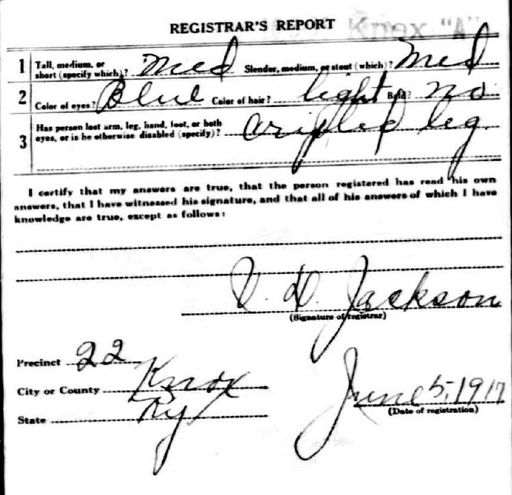 Knox "A"
REGISTRAR'S REPORT
1 Tall, medium, or short (specify which)? med Slender, medium, or stout (which)? Med
2 Color of eyes? Blue Color of hair? light Bald? no
3 Has person lost arm, leg, hand, foot, or both eyes, or is he otherwise disabled (specify)? cripled leg.
I certify that my answers are true, that the person registered has read his own
answers, that I have witnessed his signature, and that all of his answers of which I have
knowledge are true, except as follows:
V. D. Jackson
(Signature of registrar)
Precinct 22
City or County Knox
State Ky
June 5, 1917
(Date of registration)